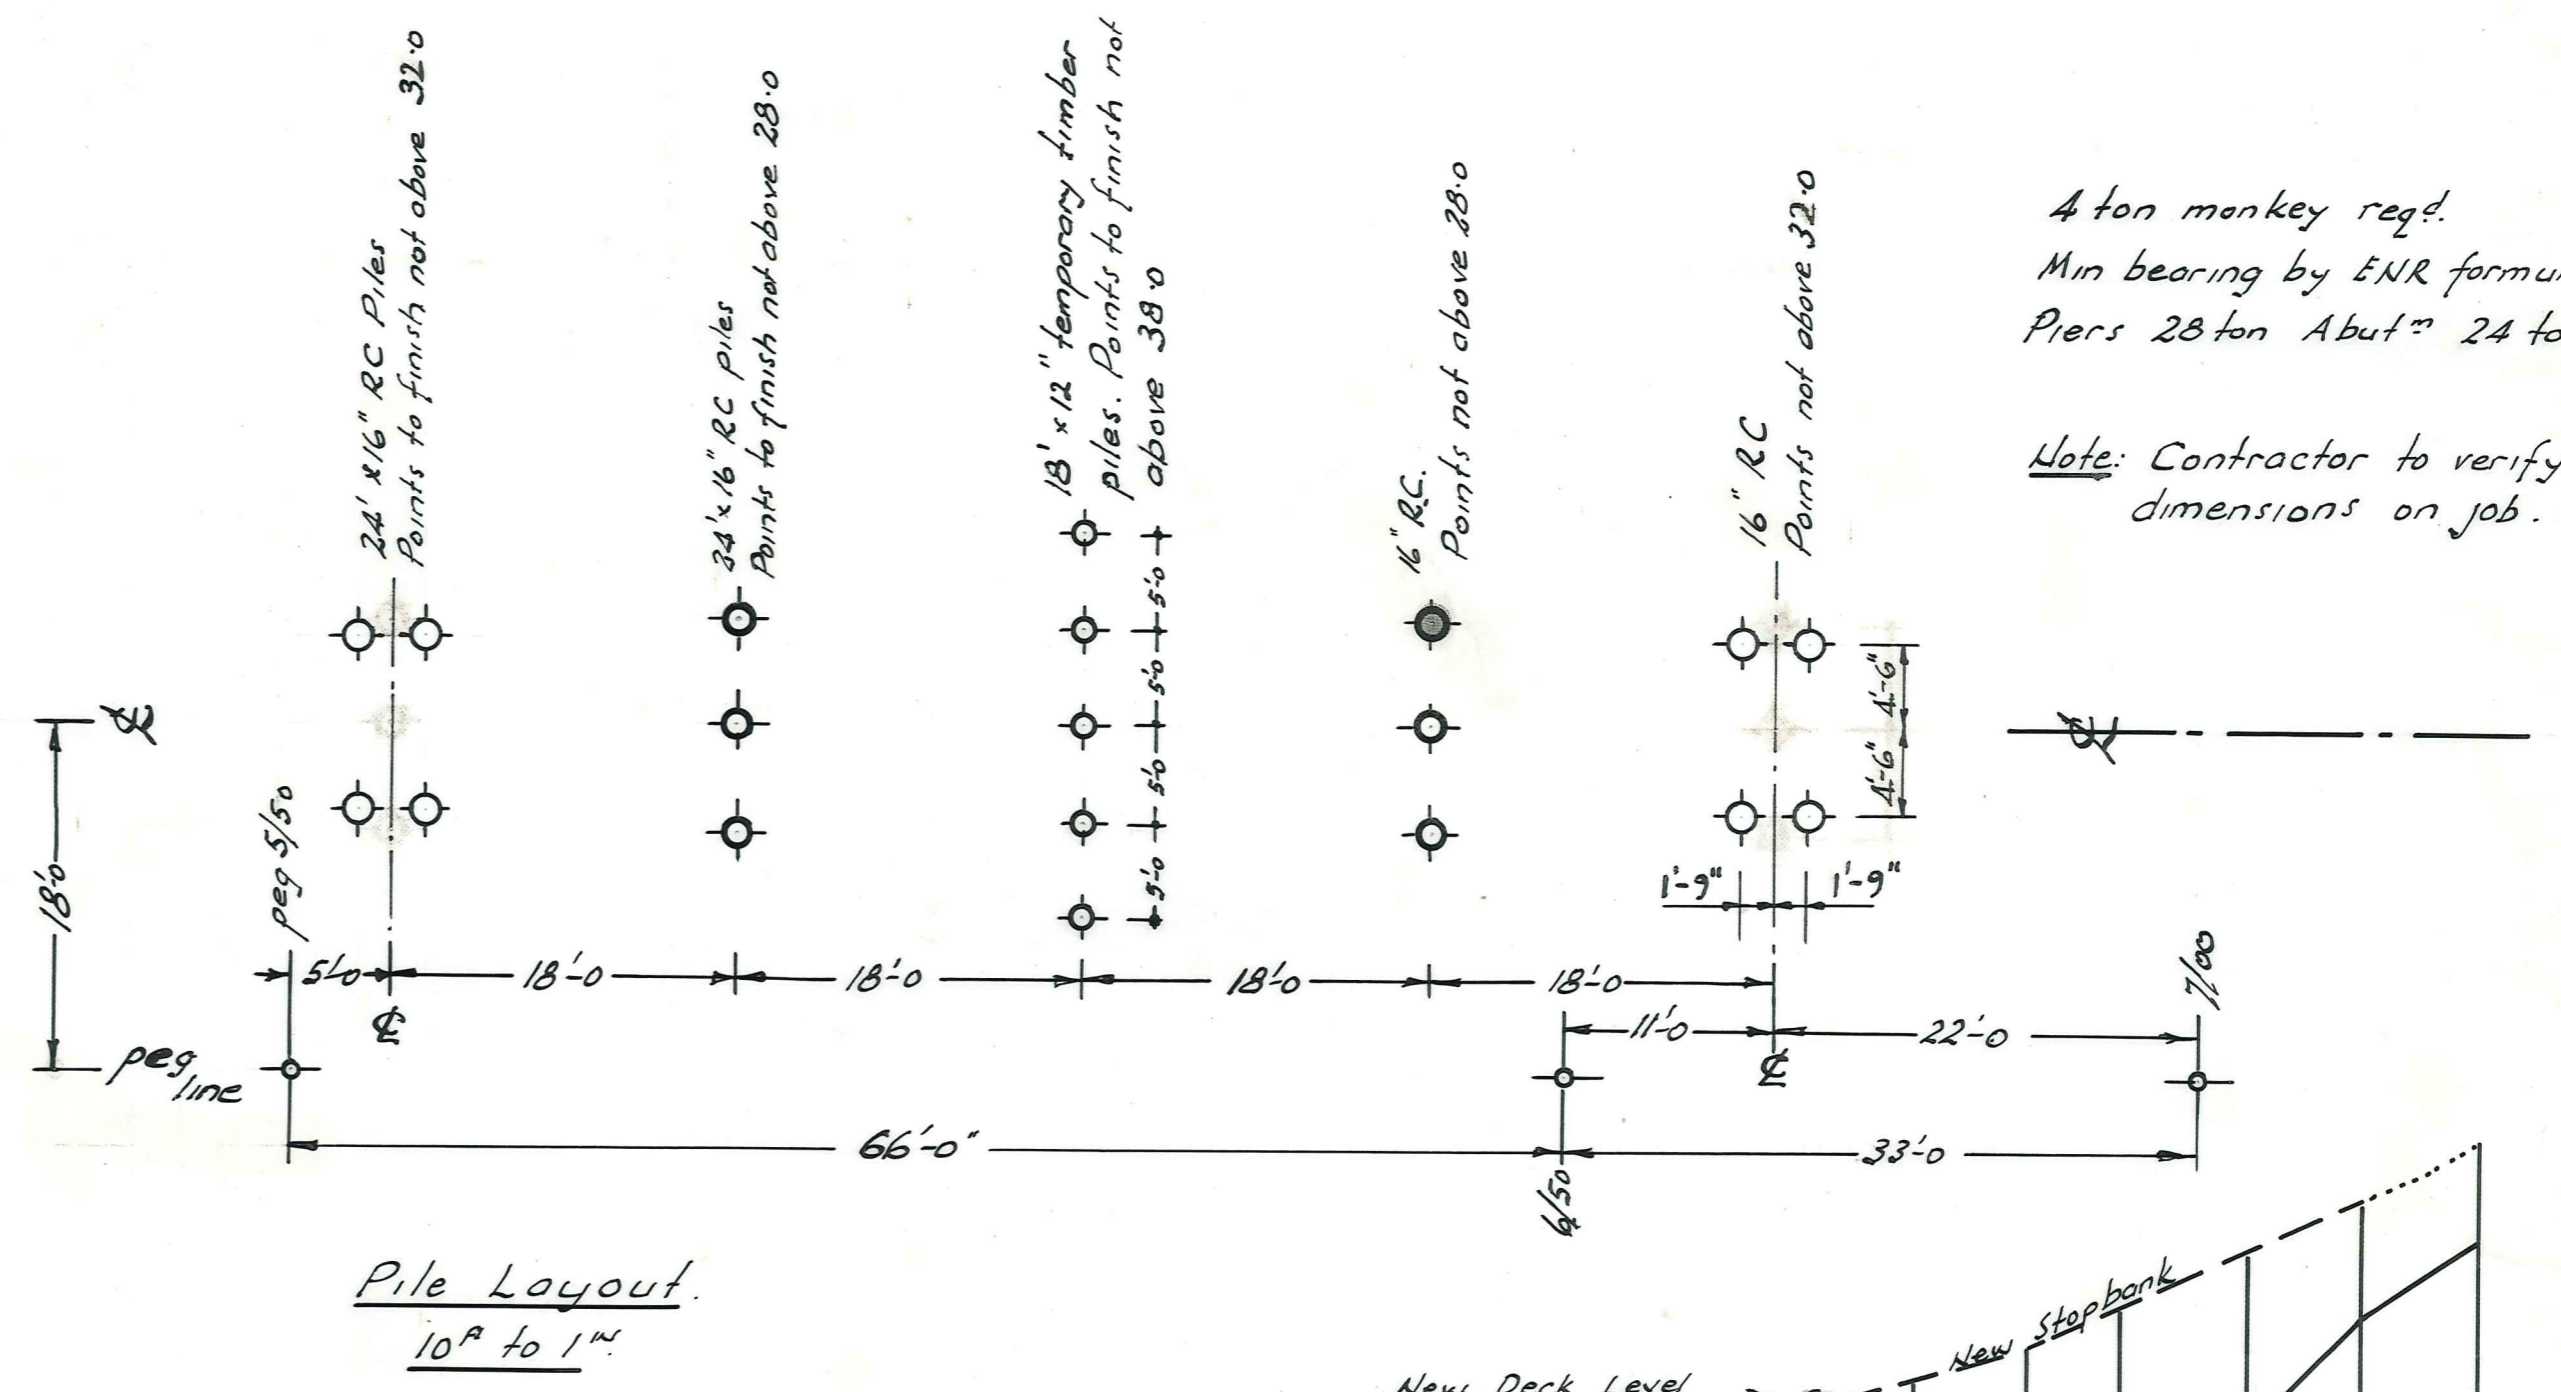 24' x 16" RC Piles
Points to finish not above 32.0
24' x 16" RC piles
Points to finish not above 28.0
18' x 12" temporary timber
piles. Points to finish not
above 38.0
16" RC.
Points not above 28.0
16" RC
Points not above 32.0
4 ton monkey reqd.
Min bearing by ENR formu
Piers 28 ton Abutm 24 to
Note: Contractor to verify
dimensions on job.
5'-0
5'-0
5'-0
5'-0
4'-6"
4'-6"
℄
℄
18'-0
peg 5/50
1'-9"
1'-9"
5'-0
18'-0
18'-0
18'-0
18'-0
7/00
℄
11'-0
22'-0
℄
peg
line
66'-0"
33'-0
6/50
Pile Layout.
10ft to 1in.
New Stopbank
New Deck Level